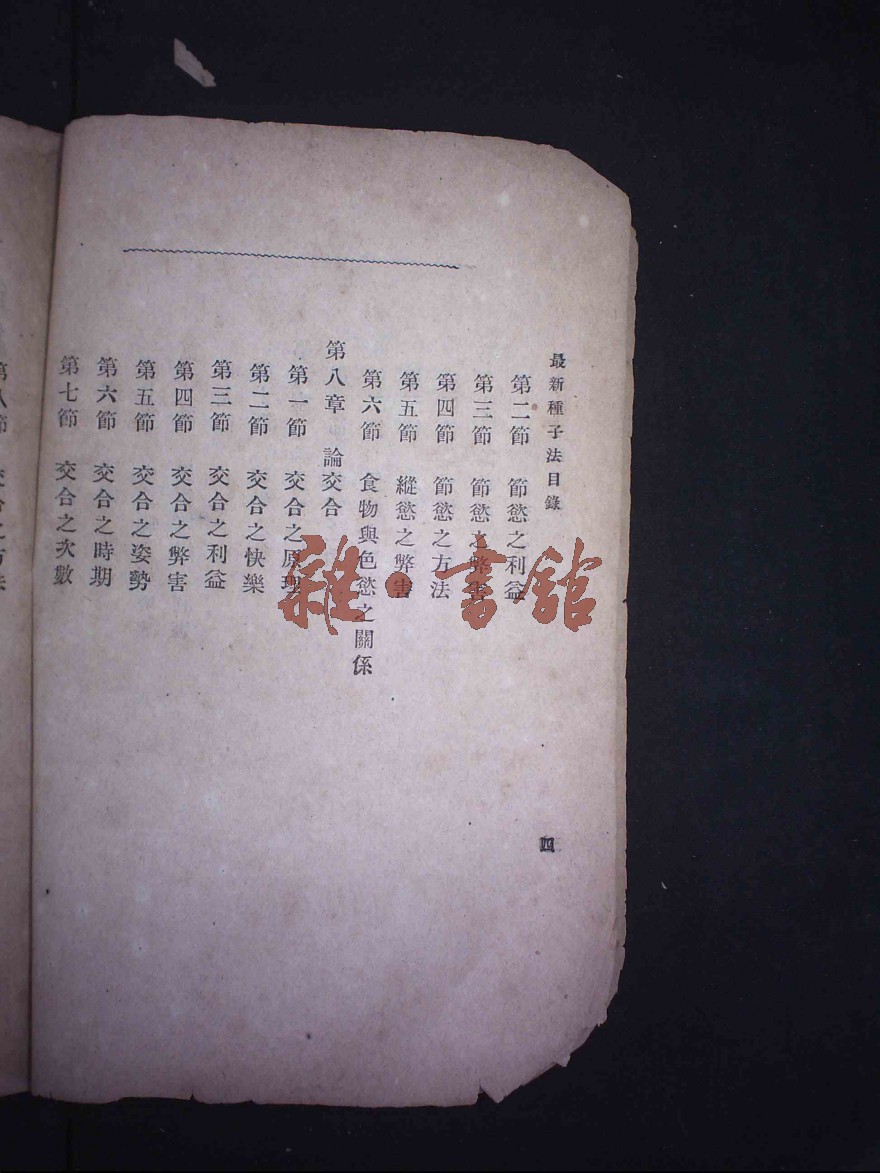 最新種子法目錄
四
第二節 節慾之利益
第三節 節慾之弊害
第四節 節慾之方法
第五節 縱慾之弊害
第六節 食物與色慾之關係
第八章 論交合
第一節 交合之原理
第二節 交合之快樂
第三節 交合之利益
第四節 交合之弊害
第五節 交合之姿勢
第六節 交合之時期
第七節 交合之次數
第八節 交合之方法
雜·書館